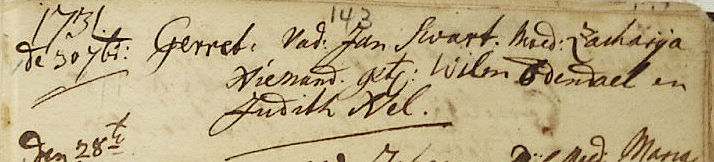 143
1731.
de 30 7br: Gerret. Vad: Jan Swart. Moed: Zacharija
Niemand. getj: Wilen Odendael en
Judith Nel.
den 28te
Maria